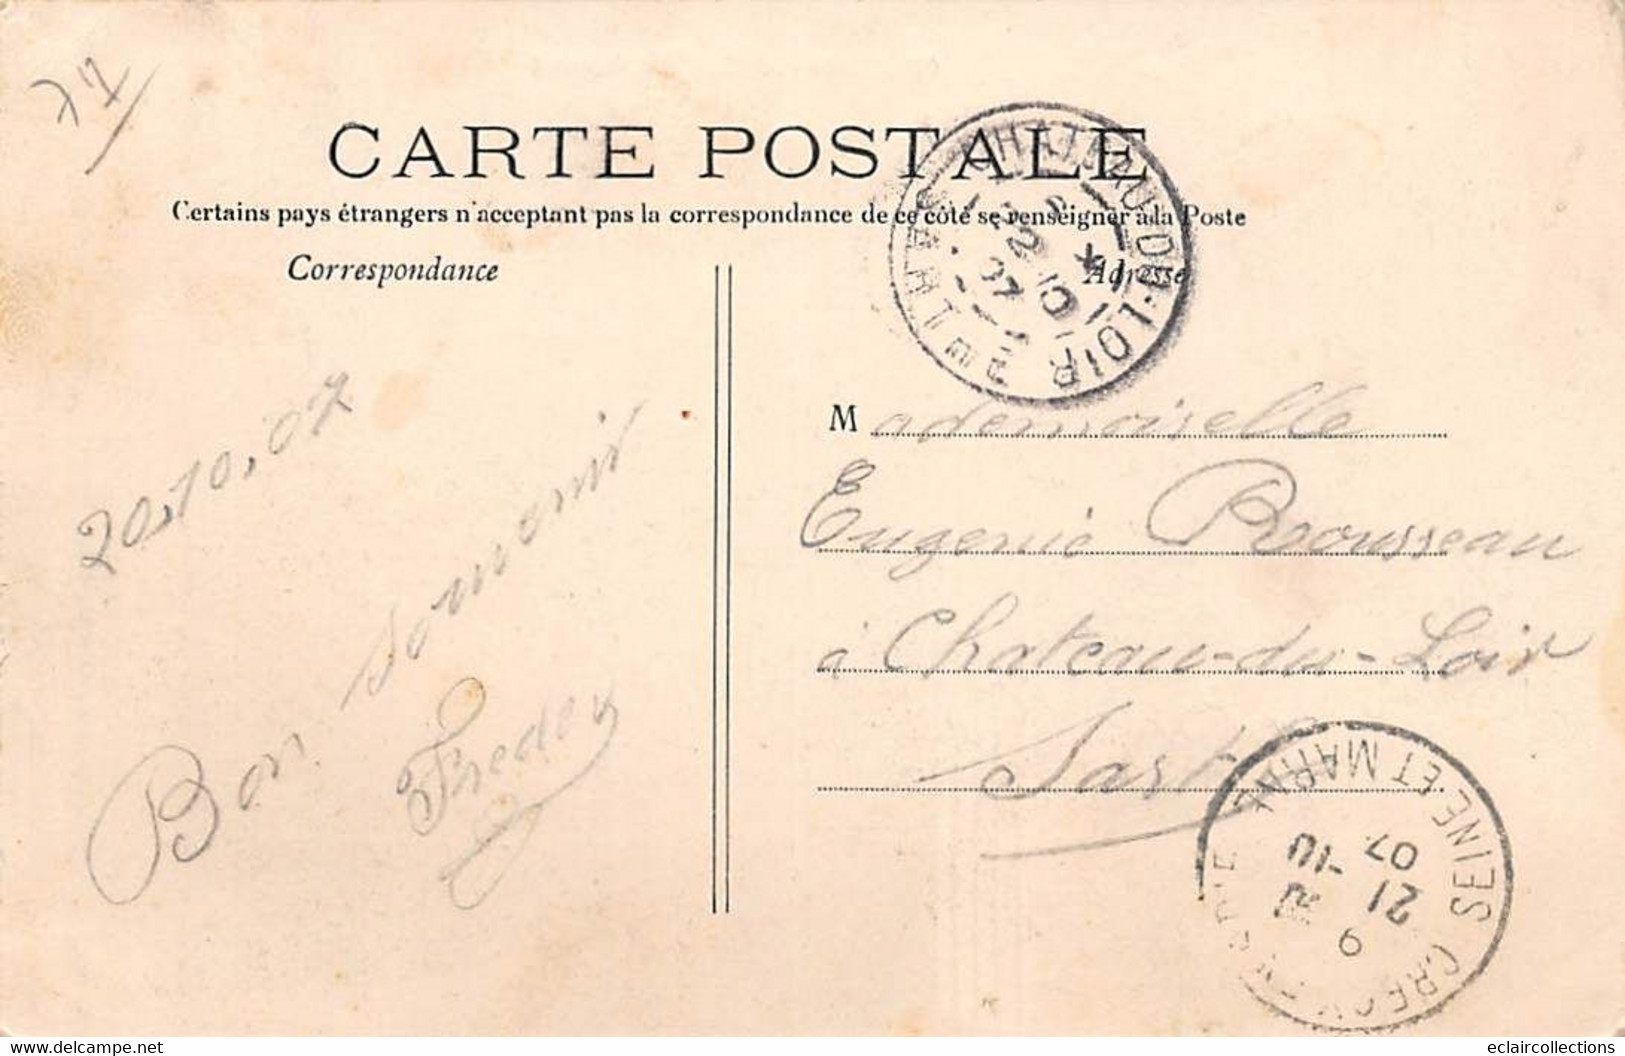 77
CARTE POSTALE
Certains pays étrangers n'acceptant pas la correspondance de ce côté se renseigner à la Poste
Correspondance
Adresse
CHATEAU-DU-LOIR
SARTHE
07
20.10.07
Bon souvenir
Freddy
Mademoiselle
Eugenie Rousseau
à Chateau-du-Loir
Sarthe
SEINE ET MARNE
CRECY-EN-BRIE
9
21 -10
07
Copyright delcampe.net
eclaircollections